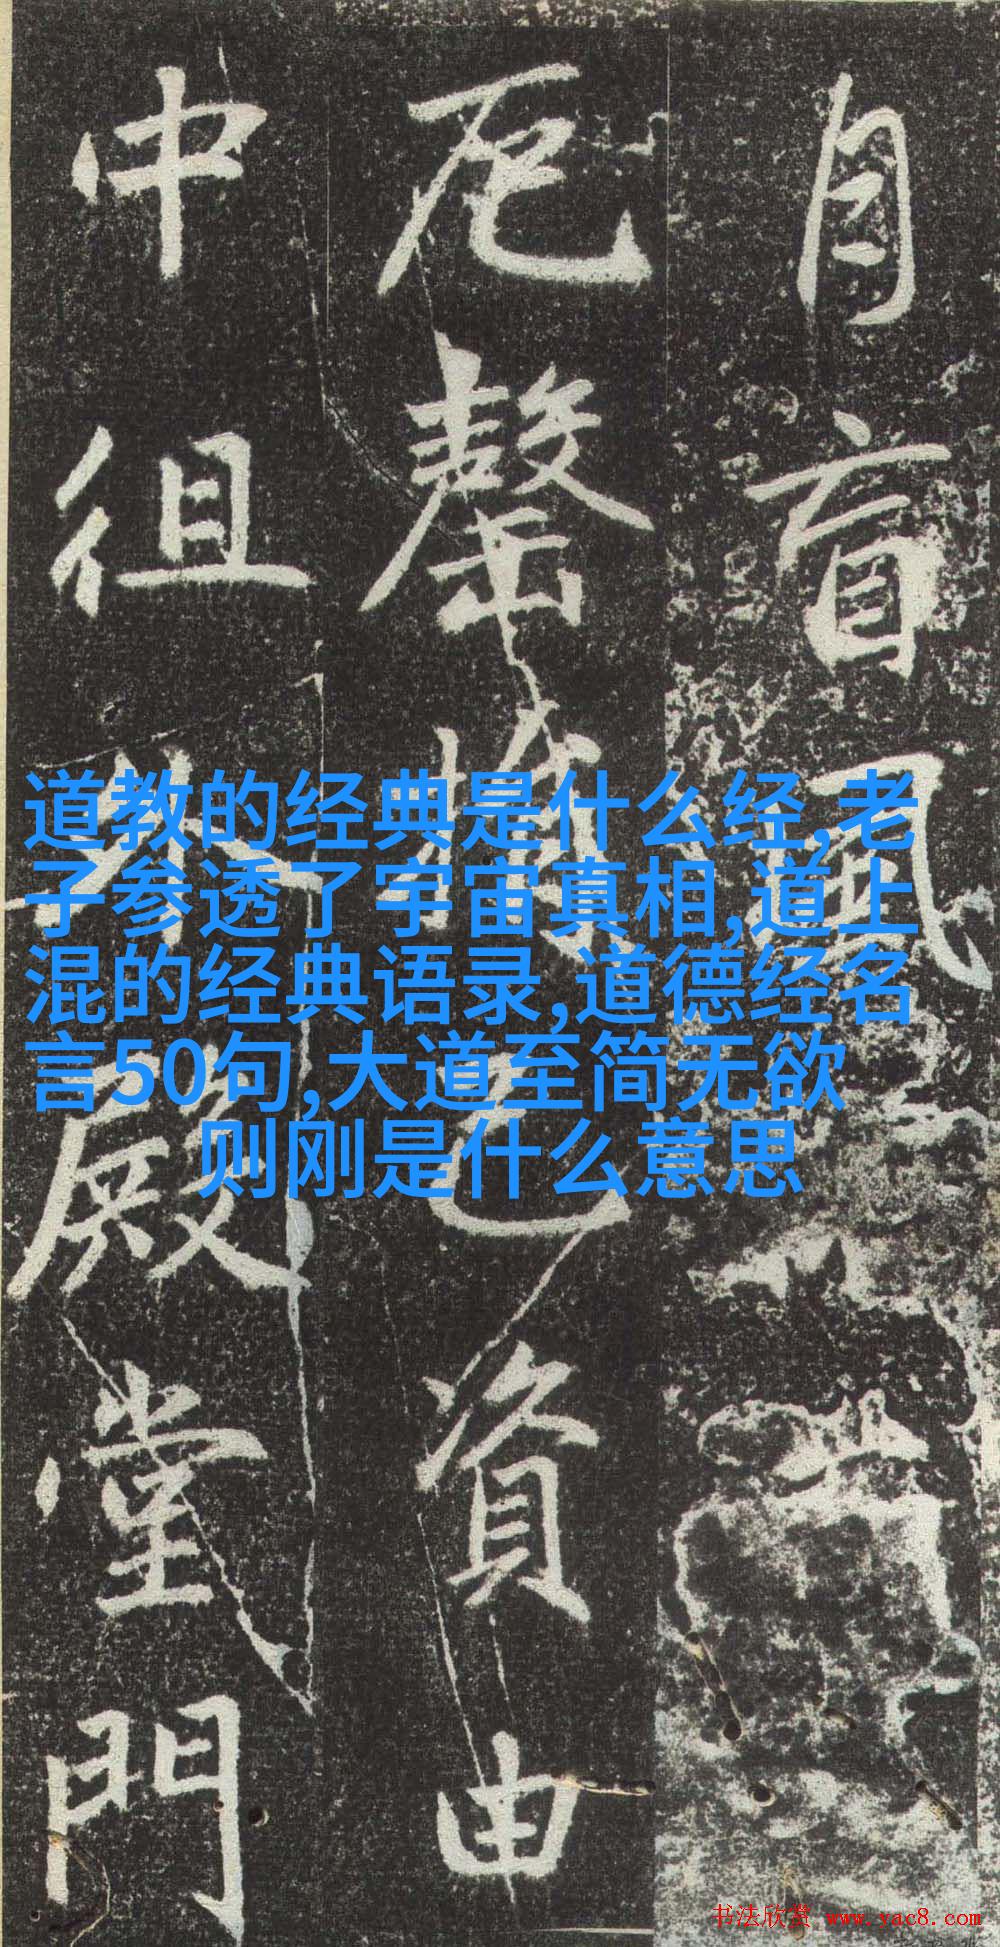 盲風
厄罄
資由
中徂
殿堂門
道教的经典是什么经,老
子参透了宇宙真相,道上
混的经典语录,道德经名
言50句,大道至简无欲
则刚是什么意思
书法欣赏 www.yac8.com